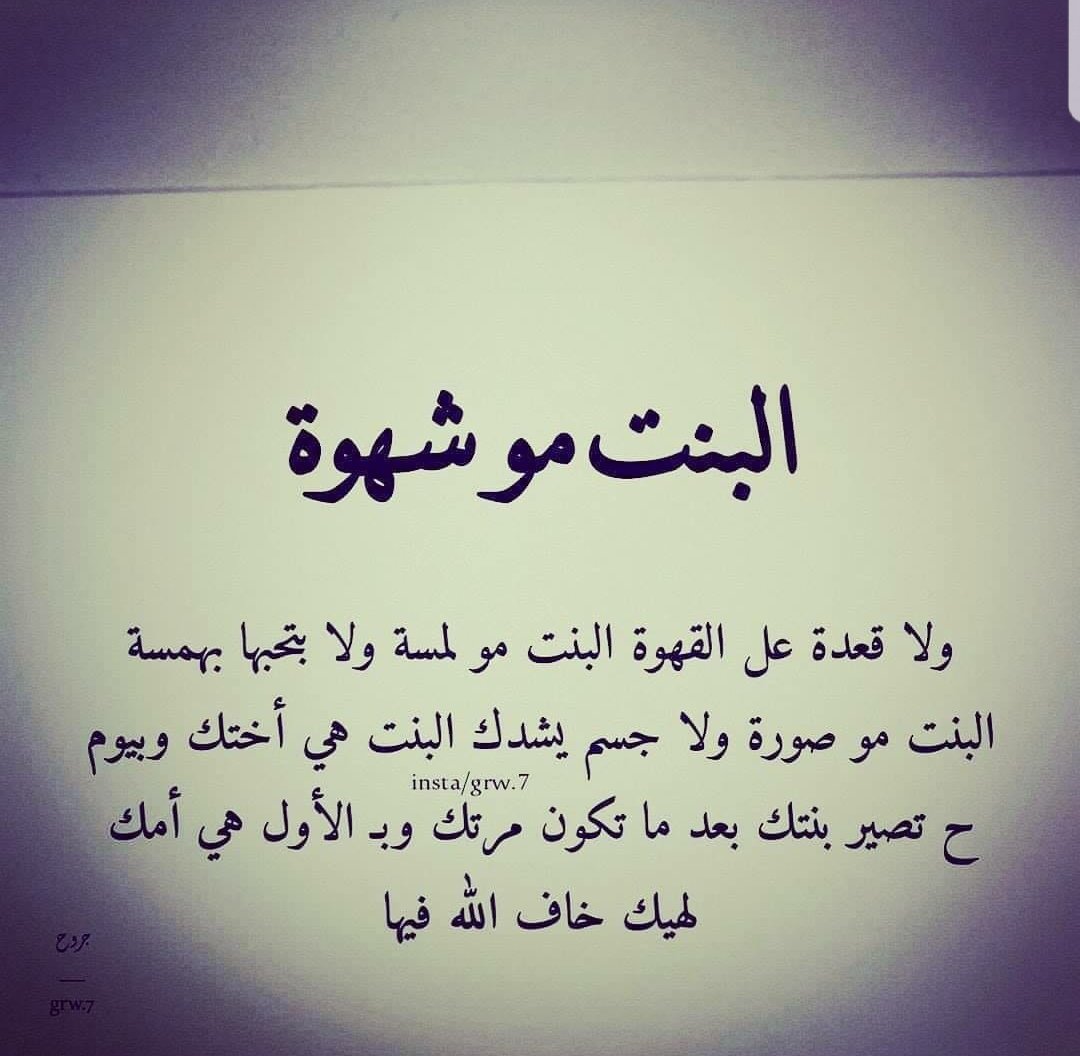 البنت مو شهوة
ولا قعدة عل القهوة البنت مو لمسة ولا بتحبها بهمسة
البنت مو صورة ولا جسم يشدك البنت هي أختك وبيوم
insta/grw.7
ح تصير بنتك بعد ما تكون مرتك وبـ الأول هي أمك
لهيك خاف الله فيها
جروح
grw.7